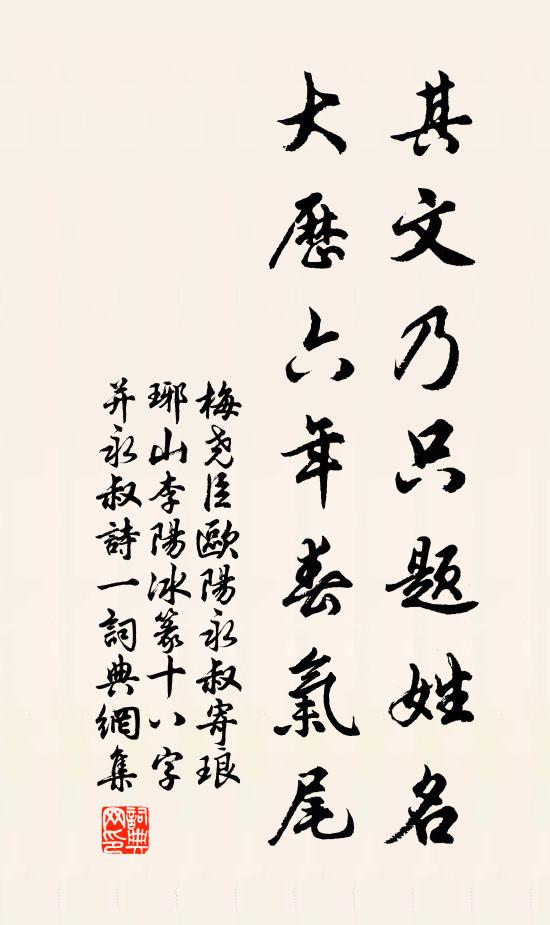 其文乃只题姓名
大歷六年春氣尾
梅尧臣歐陽永叔寄琅
琊山李陽冰篆十八字
并永叔詩一詞典網集
詞典网印